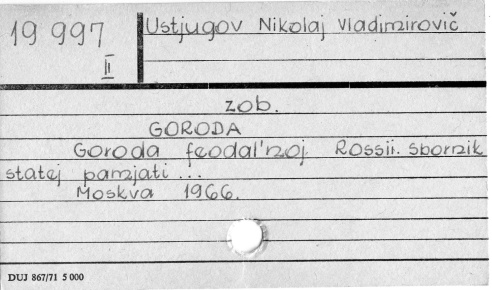 19 997
II
Ustjugov Nikolaj Vladimirovič
zob.
GORODA
Goroda feodal'noj Rossii. Sbornik
statej pamjati ...
Moskva 1966.
DUJ 867/71 5 000